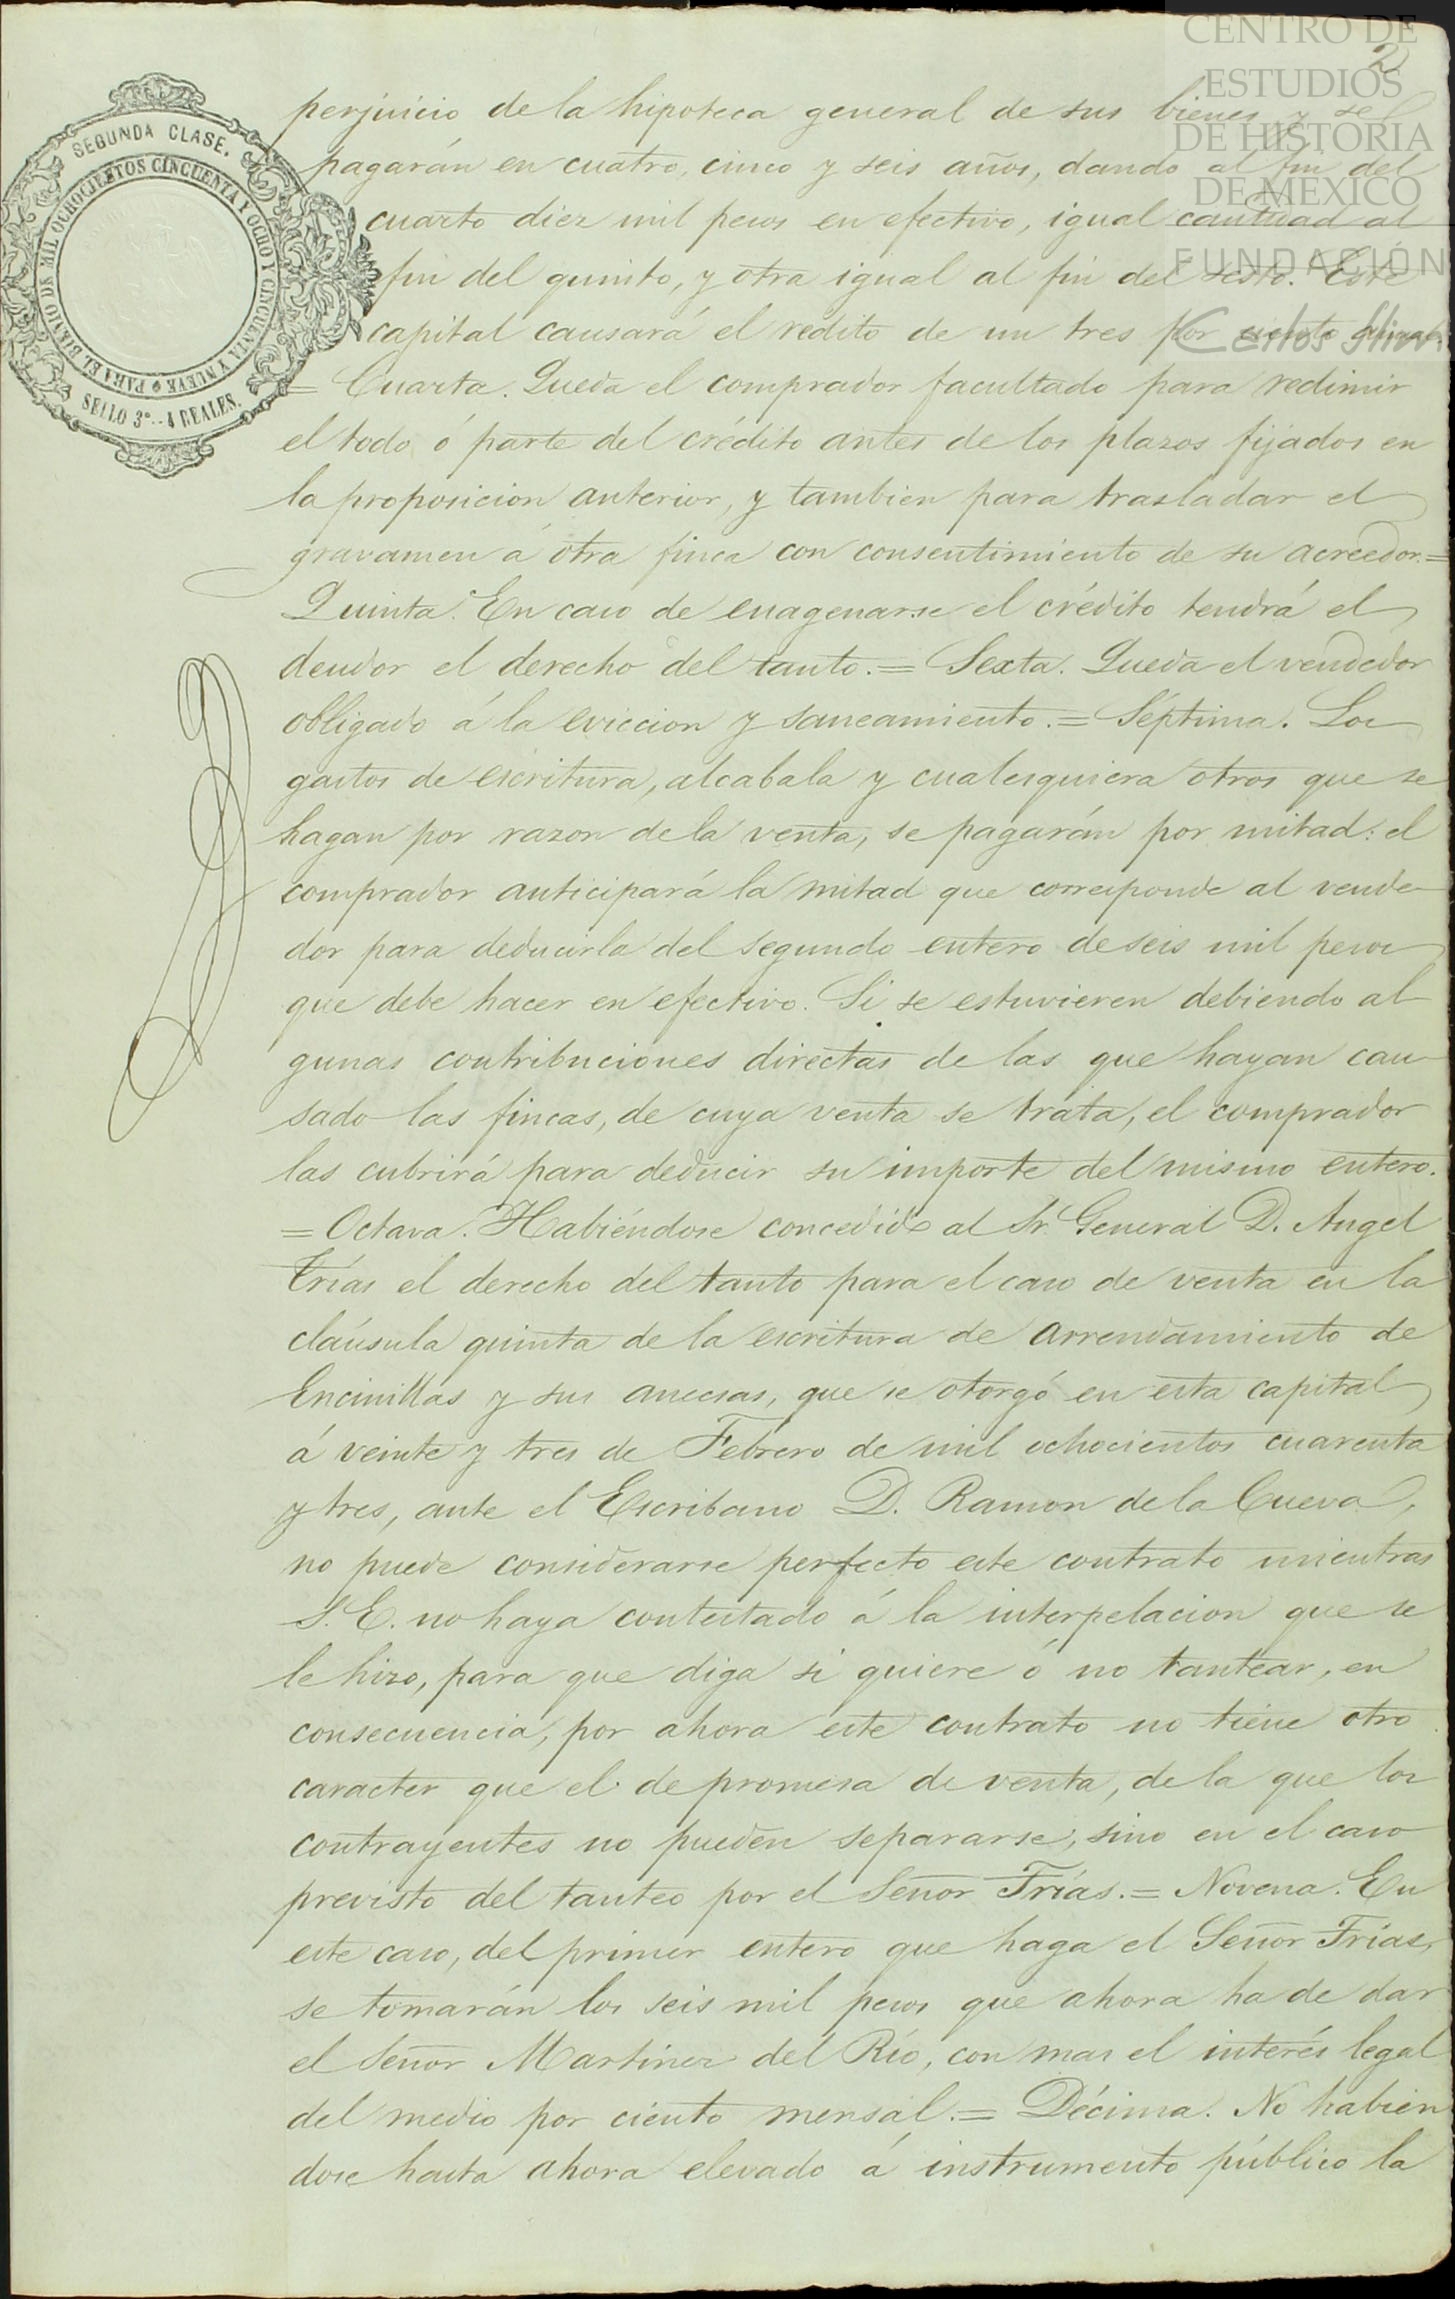 CENTRO DE
ESTUDIOS
DE HISTORIA
DE MEXICO
FUNDACIÓN
Carlos Slim
2
SEGUNDA CLASE.
PARA EL BIENIO DE MIL OCHOCIENTOS CINCUENTA Y OCHO Y CINCUENTA Y NUEVE
SELLO 3º.. 4 REALES.
perjuicio de la hipoteca general de sus bienes y se
pagarán en cuatro, cinco y seis años, dando al fin del
cuarto diez mil pesos en efectivo, igual cantidad al
fin del quinto, y otra igual al fin del sesto. Este
capital causará el redito de un tres por ciento anual.
= Cuarta. Queda el comprador facultado para redimir
el todo ó parte del crédito antes de los plazos fijados en
la proposicion anterior, y tambien para trasladar el
gravamen á otra finca con consentimiento de su acreedor.=
Quinta. En caso de enagenarse el crédito tendrá el
deudor el derecho del tanto.= Sexta. Queda el vendedor
obligado á la eviccion y saneamiento.= Séptima. Los
gastos de escritura, alcabala y cualesquiera otros que se
hagan por razon de la venta, se pagarán por mitad: el
comprador anticipará la mitad que corresponde al vende
dor para deducirla del segundo entero de seis mil pesos
que debe hacer en efectivo. Si se estuvieren debiendo al
gunas contribuciones directas de las que hayan cau
sado las fincas, de cuya venta se trata, el comprador
las cubrirá para deducir su importe del mismo entero.
= Octava. Habiéndose concedido al Sr. General D. Angel
Trías el derecho del tanto para el caso de venta en la
cláusula quinta de la escritura de arrendamiento de
Encinillas y sus anecsas, que se otorgó en esta capital
á veinte y tres de Febrero de mil ochocientos cuarenta
y tres, ante el Escribano D. Ramon de la Cueva,
no puede considerarse perfecto este contrato mientras
S. E. no haya contestado á la interpelacion que se
le hizo, para que diga si quiere ó no tantear, en
consecuencia, por ahora este contrato no tiene otro
caracter que el de promesa de venta, de la que los
contrayentes no pueden separarse, sino en el caso
previsto del tanteo por el Señor Trías.= Novena. En
este caso, del primer entero que haga el Señor Trías,
se tomarán los seis mil pesos que ahora ha de dar
el Señor Martinez del Rio, con mas el interés legal
del medio por ciento mensal.= Décima. No habien
dose hasta ahora elevado á instrumento público la